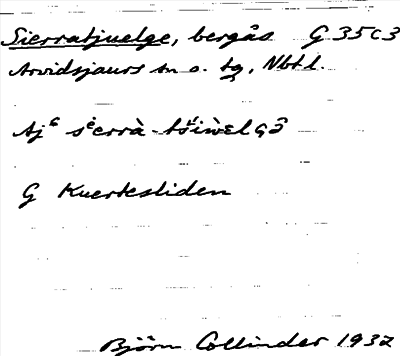 Sierratjuelge, bergås G 35 C 3
Arvidsjaurs sn o. tg, Nbt l.
Aj⁶ sėrrà-tšiẁelGȯ̂
G Kuertesliden
Björn Collinder 1932